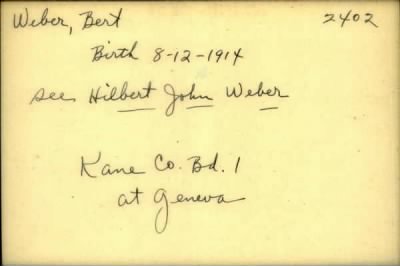 Weber, Bert 2402
Birth 8-12-1914
see Hilbert John Weber
Kane Co. Bd. 1
at Geneva